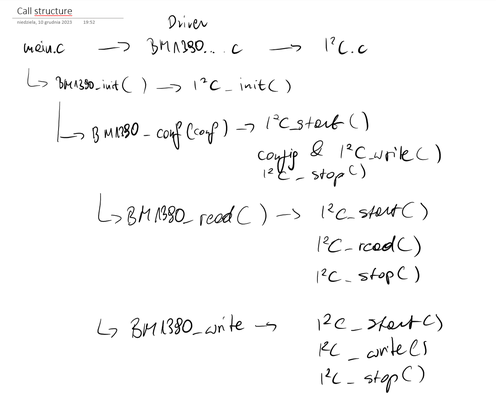 Call structure
niedziela, 10 grudnia 2023 19:52
Driver
main.c → BM1390... c → I²C.c
↳ BM1390_init() → I²C_init()
↳ BM1390_conf(conf) → I²C_start()
config & I²C_write()
I²C_stop()
↳ BM1390_read() → I²C_start()
I²C_read()
I²C_stop()
↳ BM1390_write → I²C_start()
I²C_write()
I²C_stop()